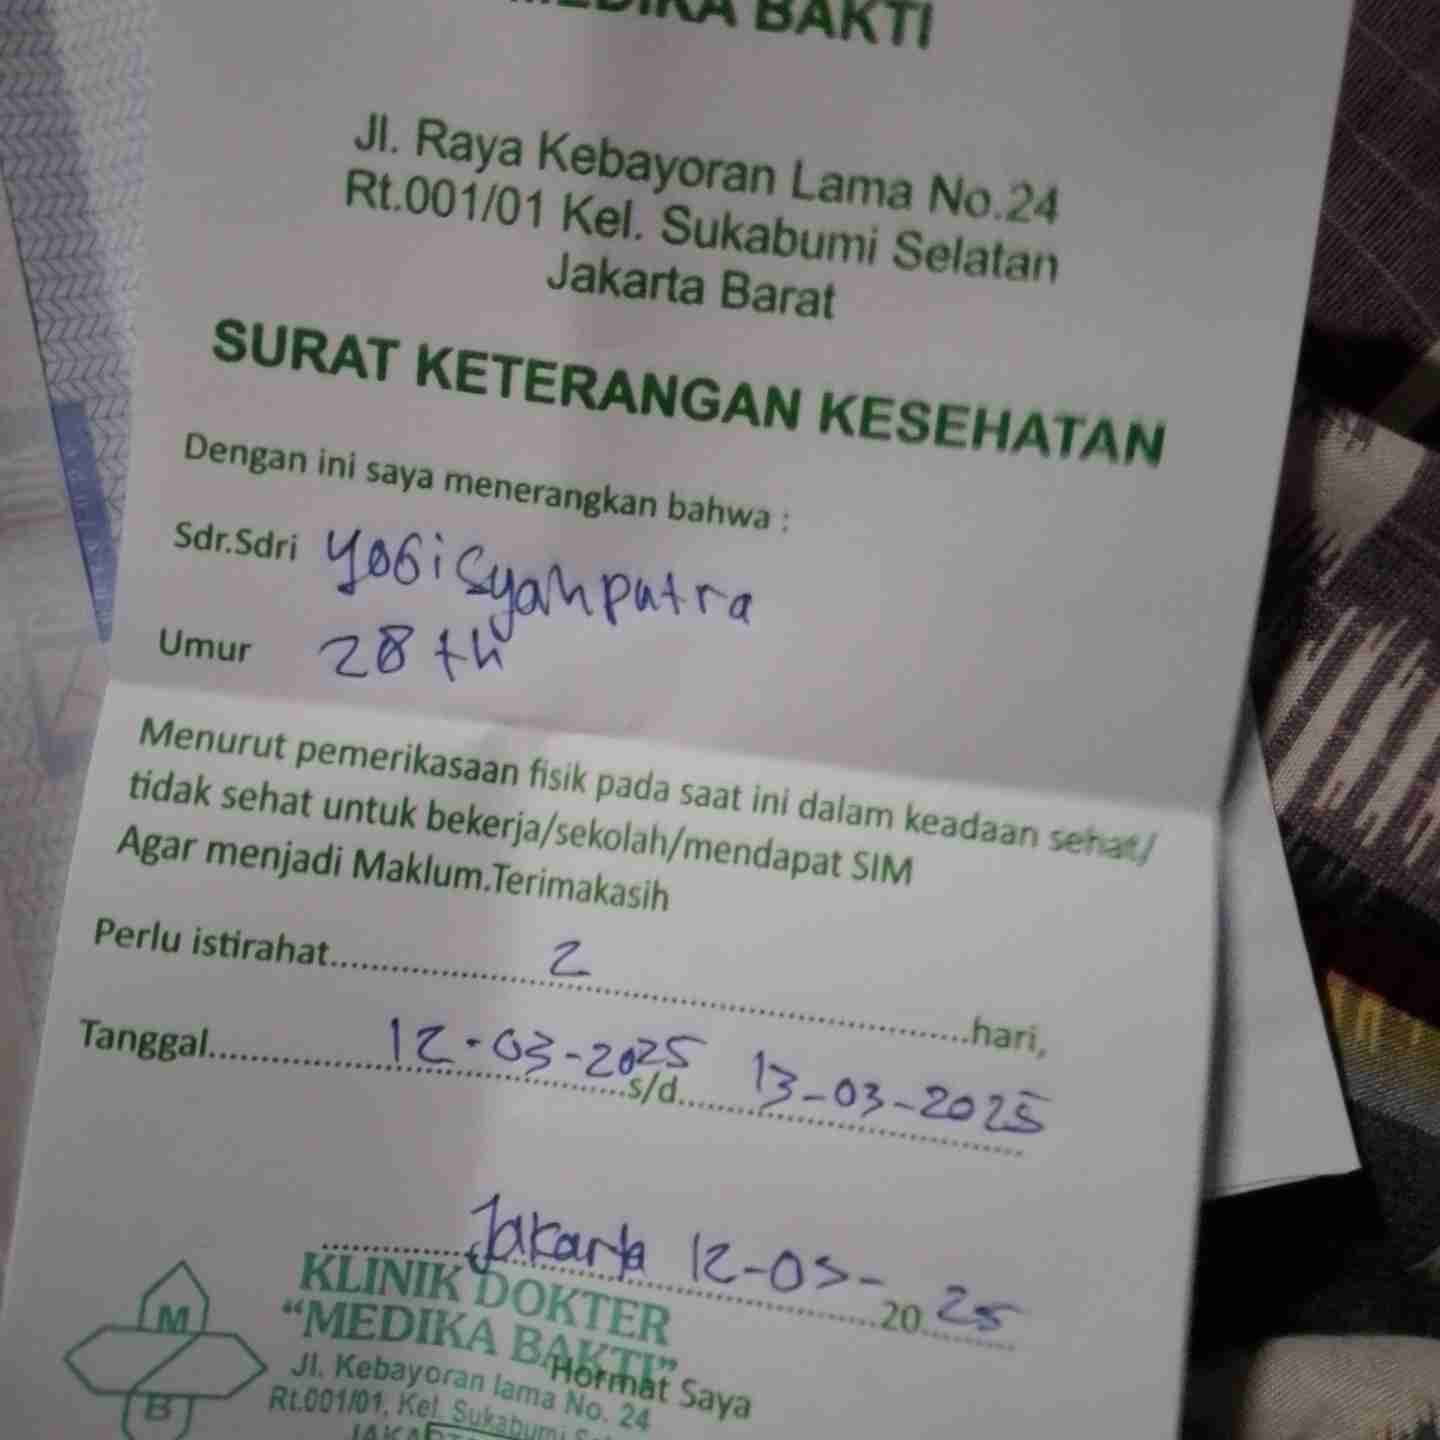 MEDIKA BAKTI
Jl. Raya Kebayoran Lama No.24
Rt.001/01 Kel. Sukabumi Selatan
Jakarta Barat
SURAT KETERANGAN KESEHATAN
Dengan ini saya menerangkan bahwa :
Sdr.Sdri Yogi Syahputra
Umur 28 th
Menurut pemerikasaan fisik pada saat ini dalam keadaan sehat/
tidak sehat untuk bekerja/sekolah/mendapat SIM
Agar menjadi Maklum.Terimakasih
Perlu istirahat 2 hari,
Tanggal 12-03-2025 s/d 13-03-2025
Jakarta 12-03- 20 25
KLINIK DOKTER
“MEDIKA BAKTI”
Hormat Saya
Jl. Kebayoran lama No. 24
Rt.001/01, Kel. Sukabumi
M
B